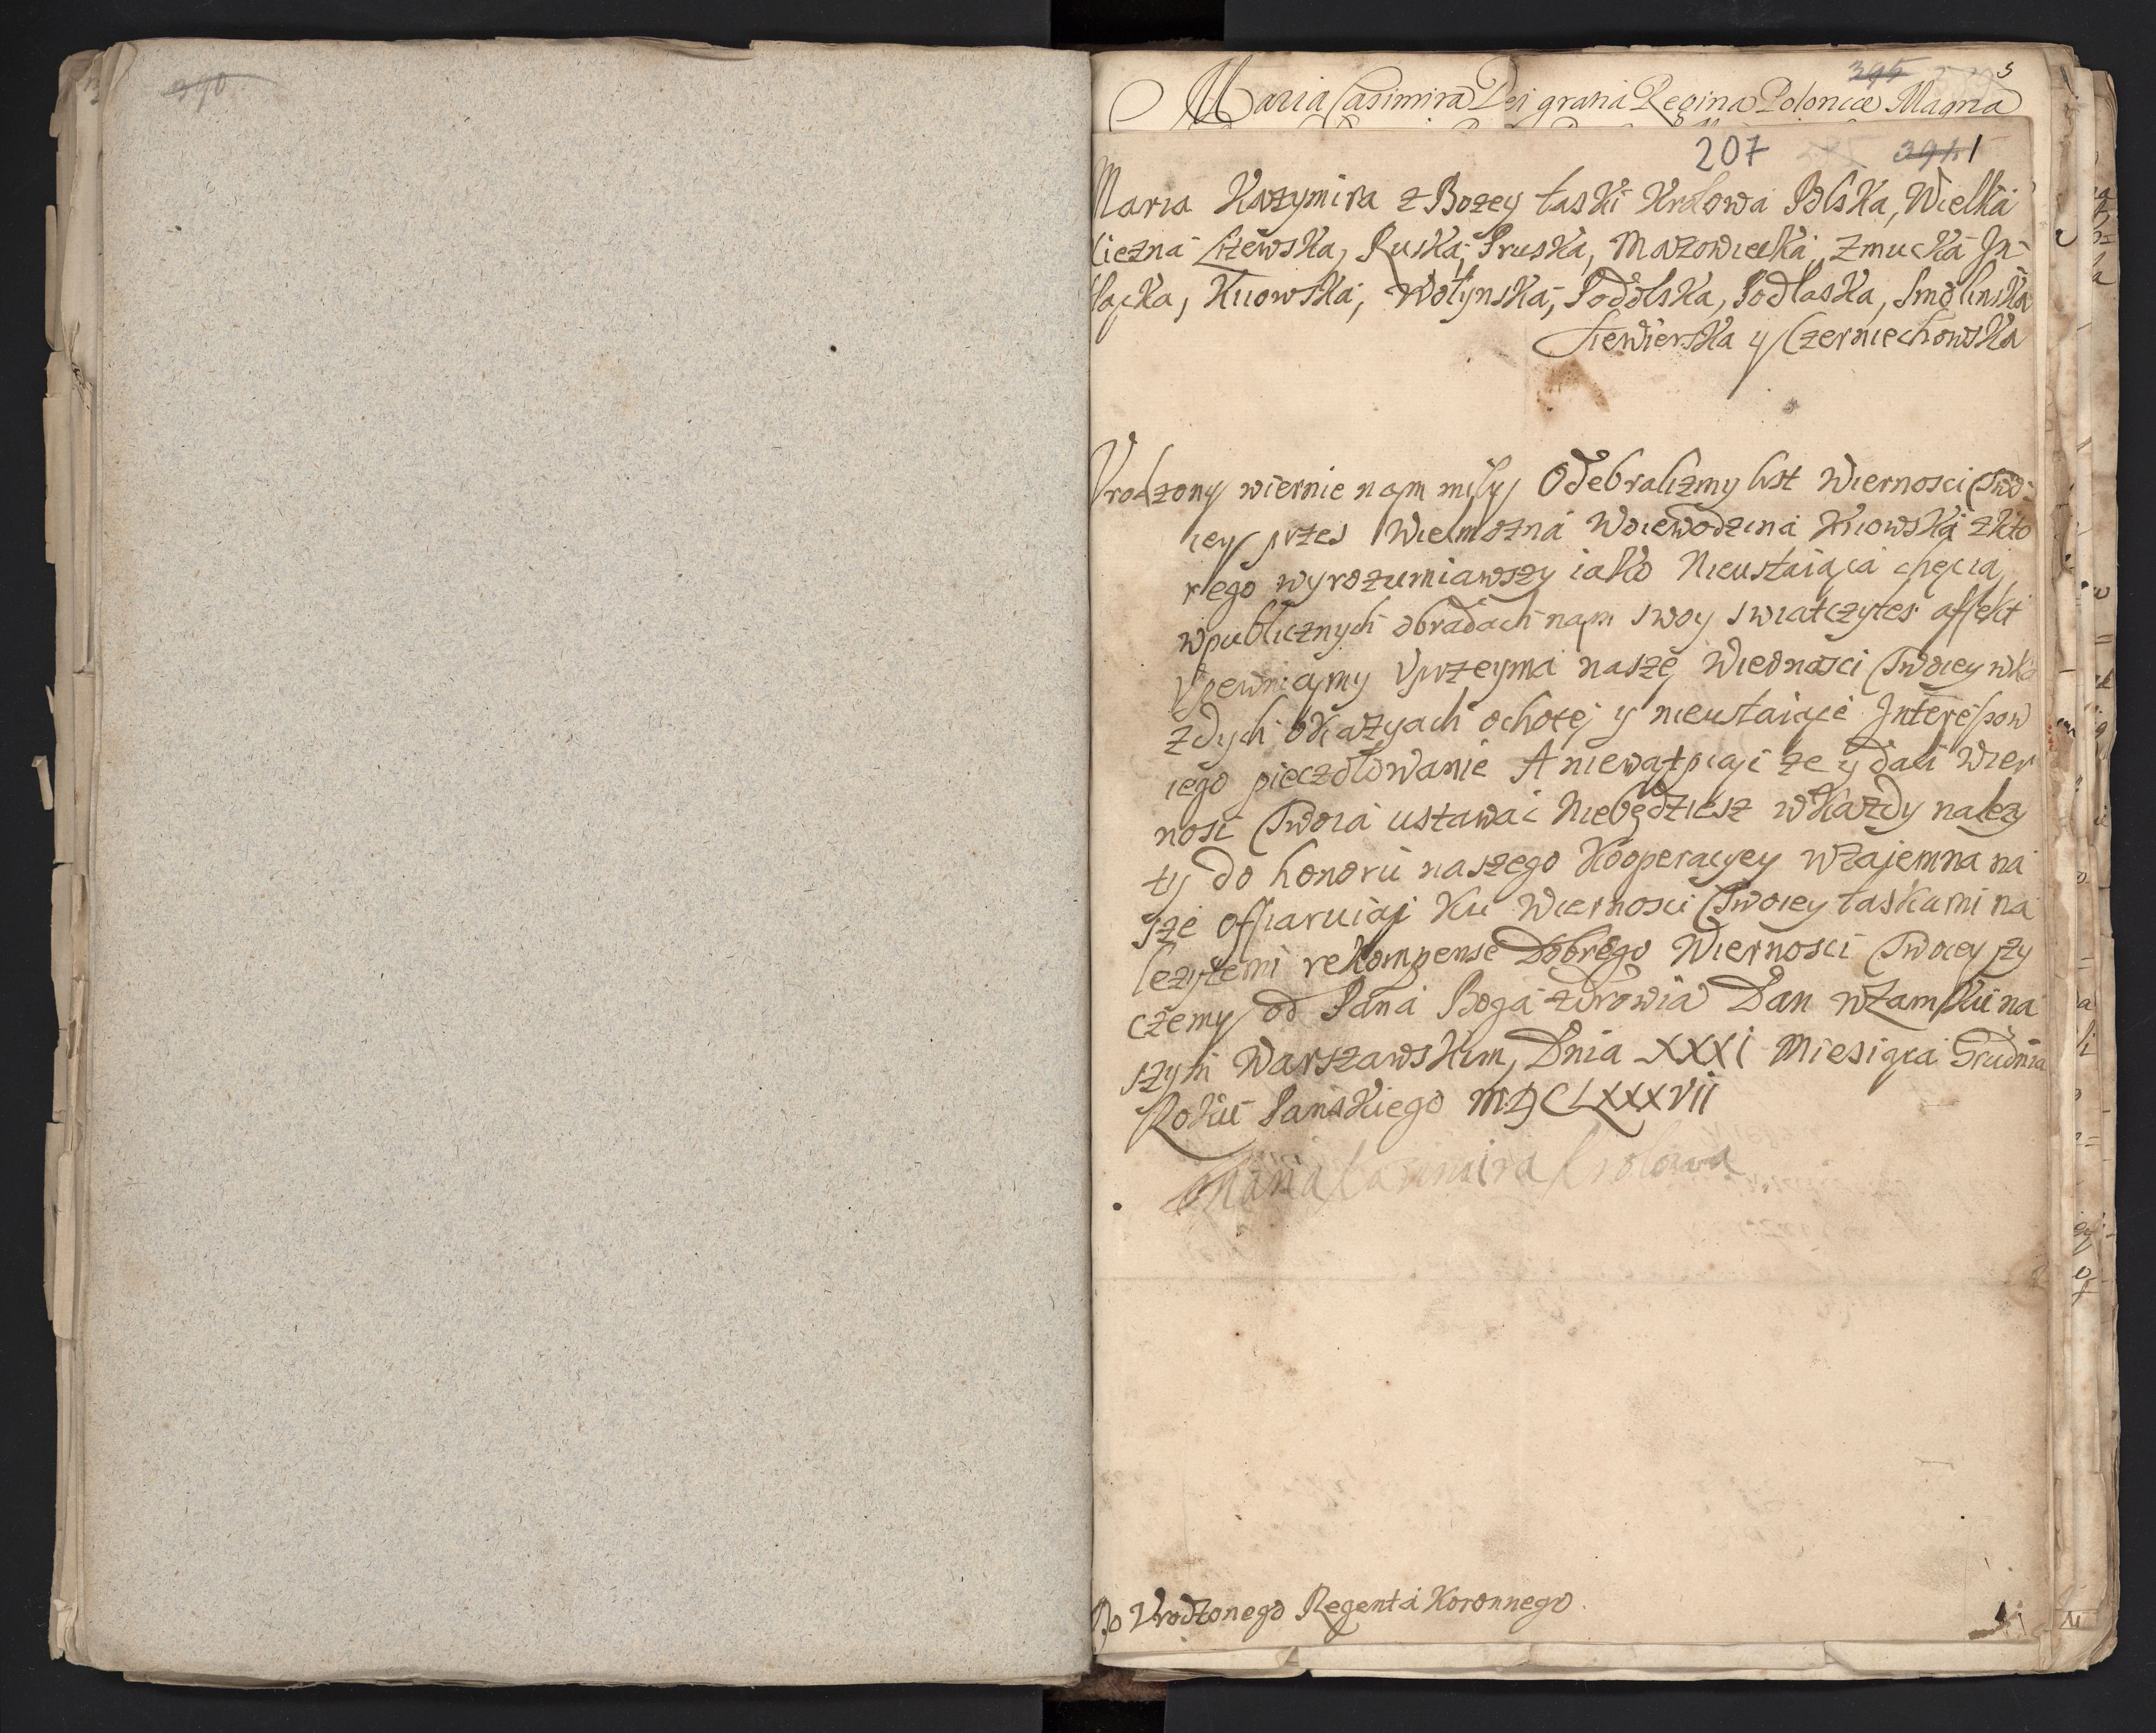 390
395
5
Maria Casimira Dei gratia Regina Poloniæ Magna
207 394 1
Maria Kazymira z Bozey łaski Krolowa Polska, Wielka
Xiezna Litewska, Ruska, Pruska, Mazowiecka, Zmucka In-
flacka, Kiiowska, Wołynska, Podolska, Podlaska, Smolinska
Siewierska y Czerniechowska
Vrodzony wiernie nam miły Odebralizmy list Wiernosci Two-
iey przes Wielmozna Woiewodzina Kiiowska z kto
rego wyrozumiawszy iako Nieustaiąca chęcią
w publicznych obradach nam swoy swiatczytes affekt
Vpewniamy Vprzeyma naszę Wiernosci Twoiey w ka
zdych okazyach ochotę y nieustaiące Interessow
iego pieczołowanie A niewątpiąc ze y dali Wier
nosc Twoia ustawac Niebędziesz w kazdy nalezy
ty do honoru naszego Kooperacyey wzajemna na
sze offiaruiąc Ku Wiernosci Twoiey łaskami na
lezytemi rekompense Dobrego Wiernosci Twoiey zy
czemy od Pana Boga zdrowia Dan w Zamku na
szym Warszawskim, Dnia XXXI Miesiąca Grudnia
Roku Panskiego MDCLXXXVII
Maria Casimira Krolowa
Do Vrodzonego Regenta Koronnego.